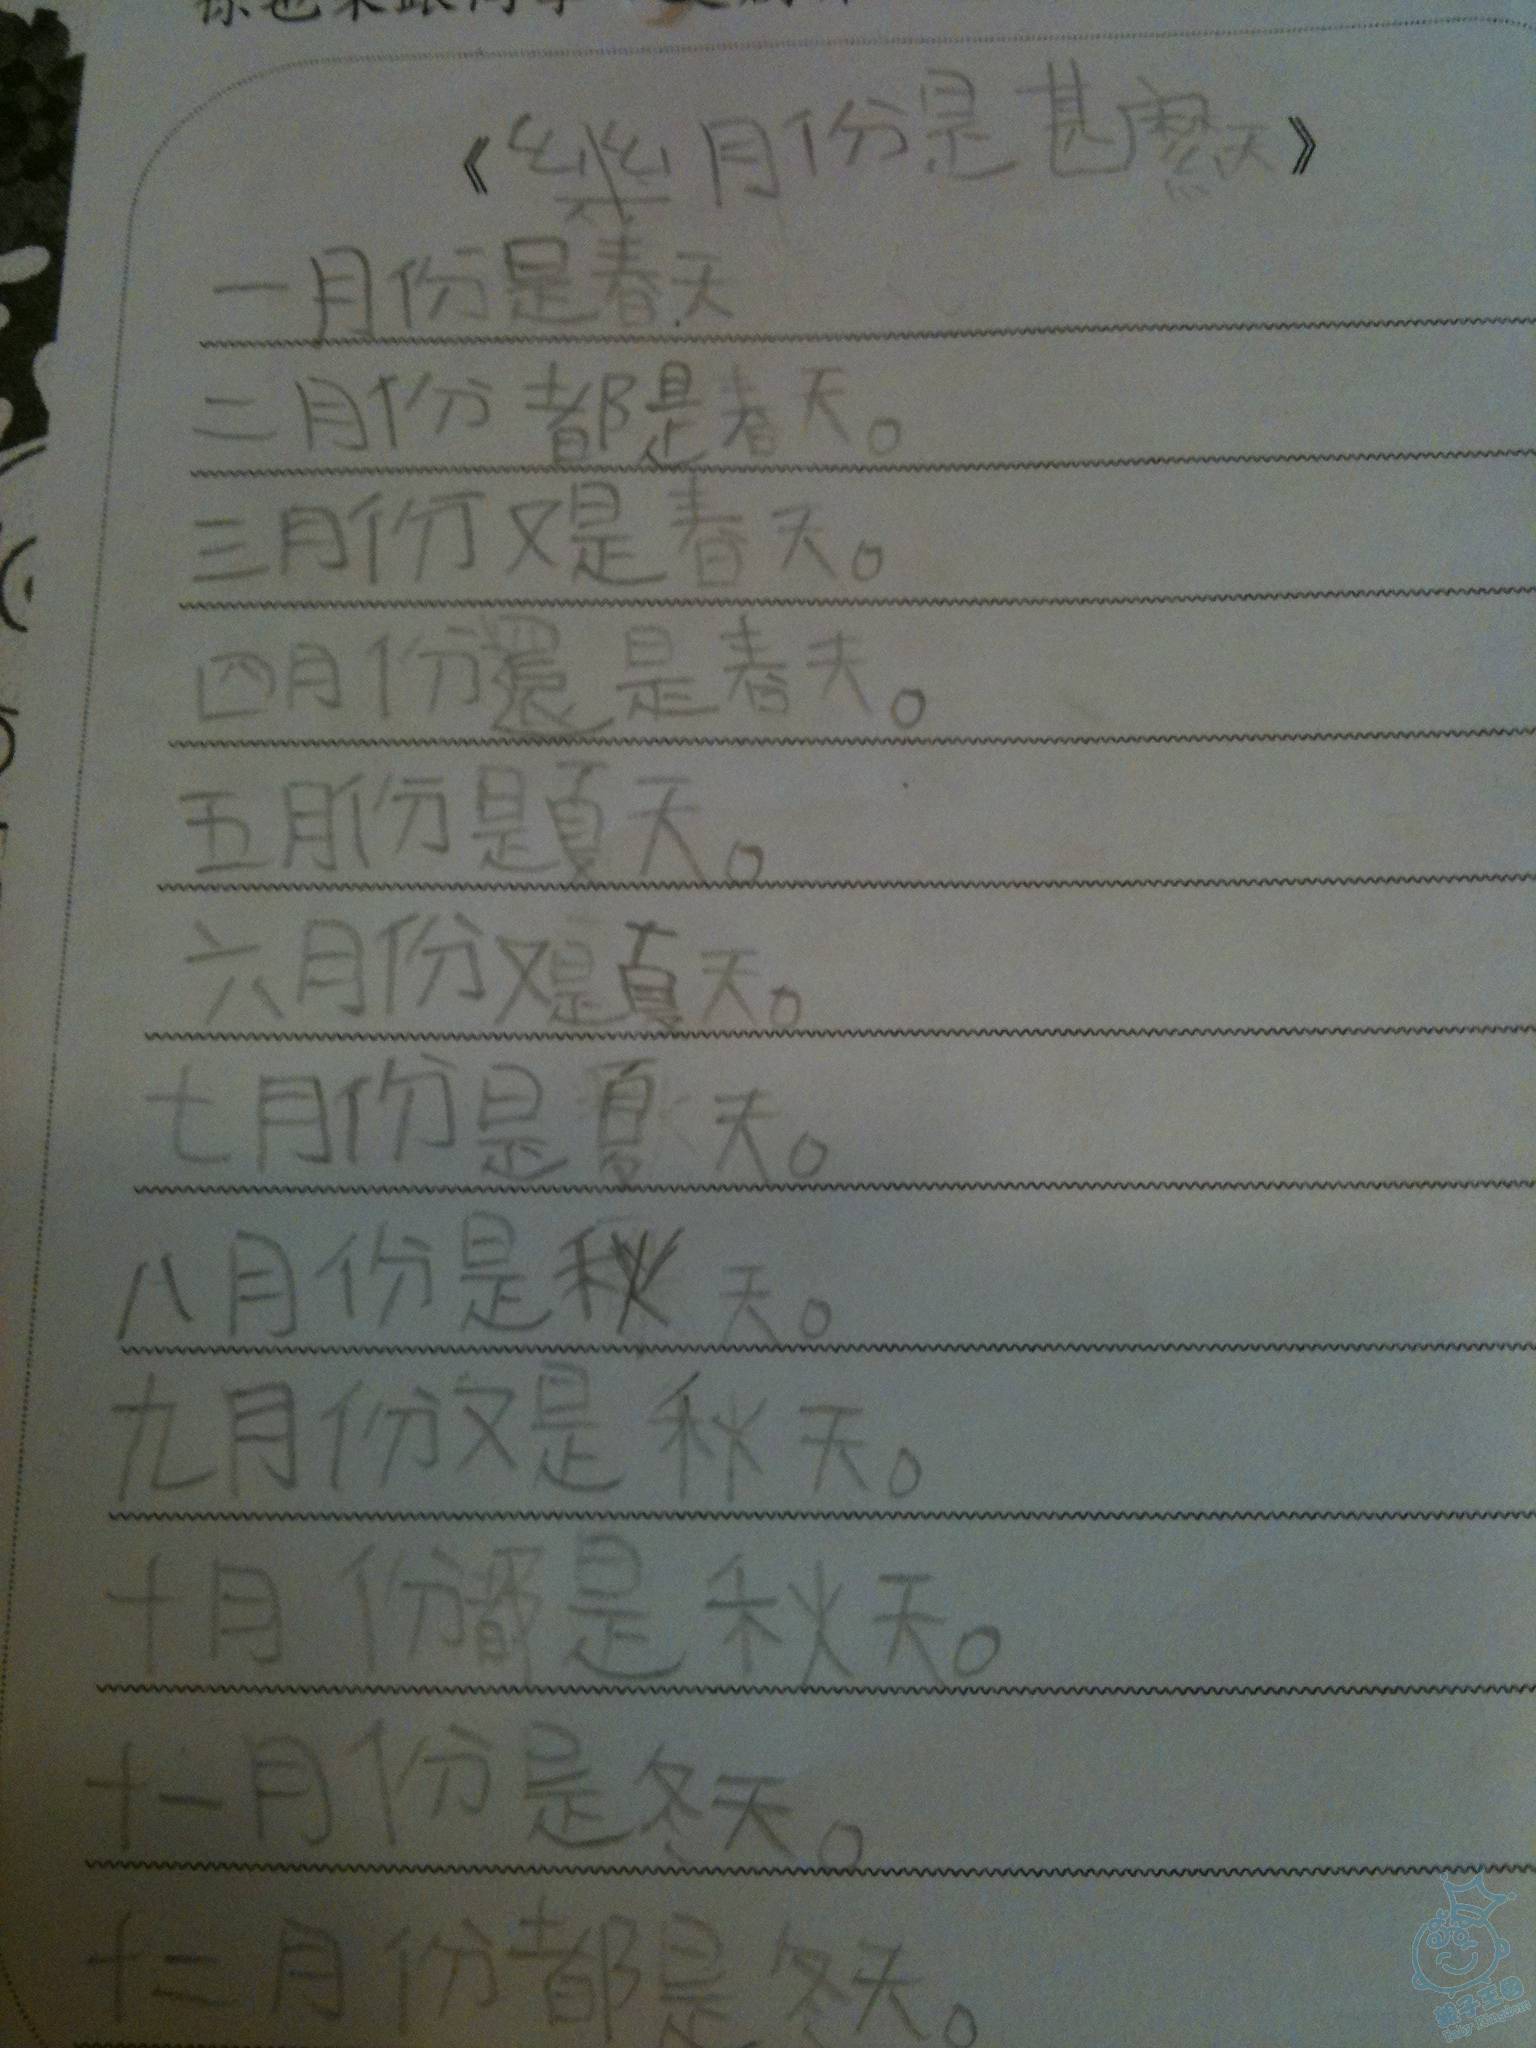 你也來跟同學
《幾月份是甚麼天》
一月份是春天
二月份都是春天。
三月份又是春天。
四月份還是春天。
五月份是夏天。
六月份又是夏天。
七月份是夏天。
八月份是秋天。
九月份又是秋天。
十月份都是秋天。
十一月份是冬天。
十二月份都是冬天。
親子王國
Baby Kingdom